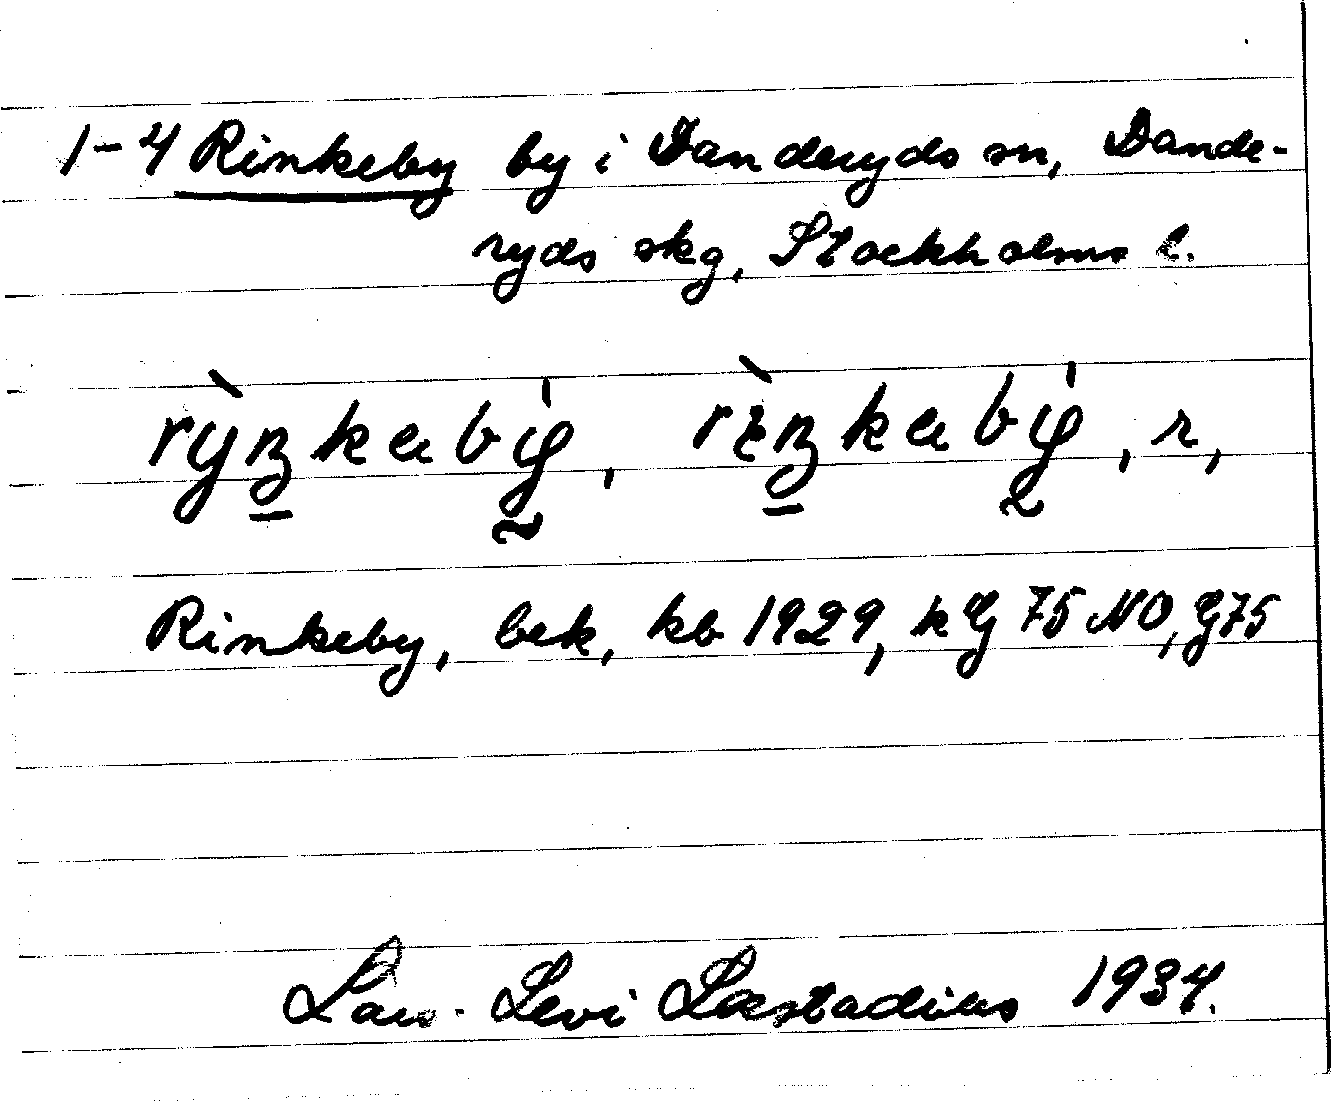 1-4 Rinkeby by i Danderyds sn, Dande-
ryds skg, Stockholms l.
Rinkeby, bek, kb 1929, kG 75 NO, G75
Lars-Levi Læstadius 1934.